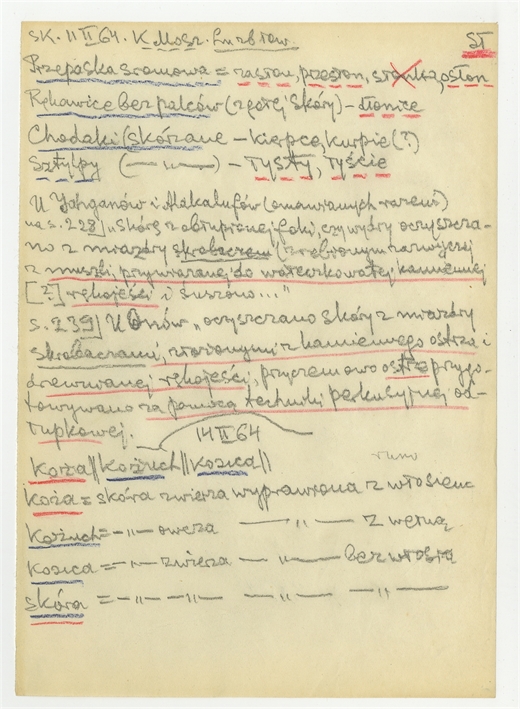 SK. 11 II 64. K. Mosz. ST
Przepaska sromowa = zasłon, przesłon, osłon
Rękawice bez palców (z gołej skóry) - dłonice
Chodaki (skórzane - kierpce, kurpie (?)
Sztylpy ( —〃— ) - TYSTY, TYŚCIE
U Yahganów i Alakalufów (omawianych razem)
na s. 228] „Skórę z obłupionej foki, czy wydry oczyszcza-
no z miazdry skrobaczem (zrobionym zazwyczaj
z muszli, przywiązanej do wałeczkowatej kamiennej
[?] rękojeści i suszono..."
s. 239] U Onów „oczyszczano skóry z miazdry
skrobaczami, złożonymi z kamiennego ostrza i
drewnianej rękojeści, przyczem owo ostrze przygo-
towywano za pomocą techniki perkusyjnej od-
łupkowej.
14 II 64
Koża || Kożuch || Kozica ||
runo
Koża = skóra zwierza wyprawiona z włosiem
Kożuch = —〃— owcza —〃— z wełną
Kozica = —〃— zwierza —〃— bez włosia
skóra = —〃— —〃— —〃— —〃—